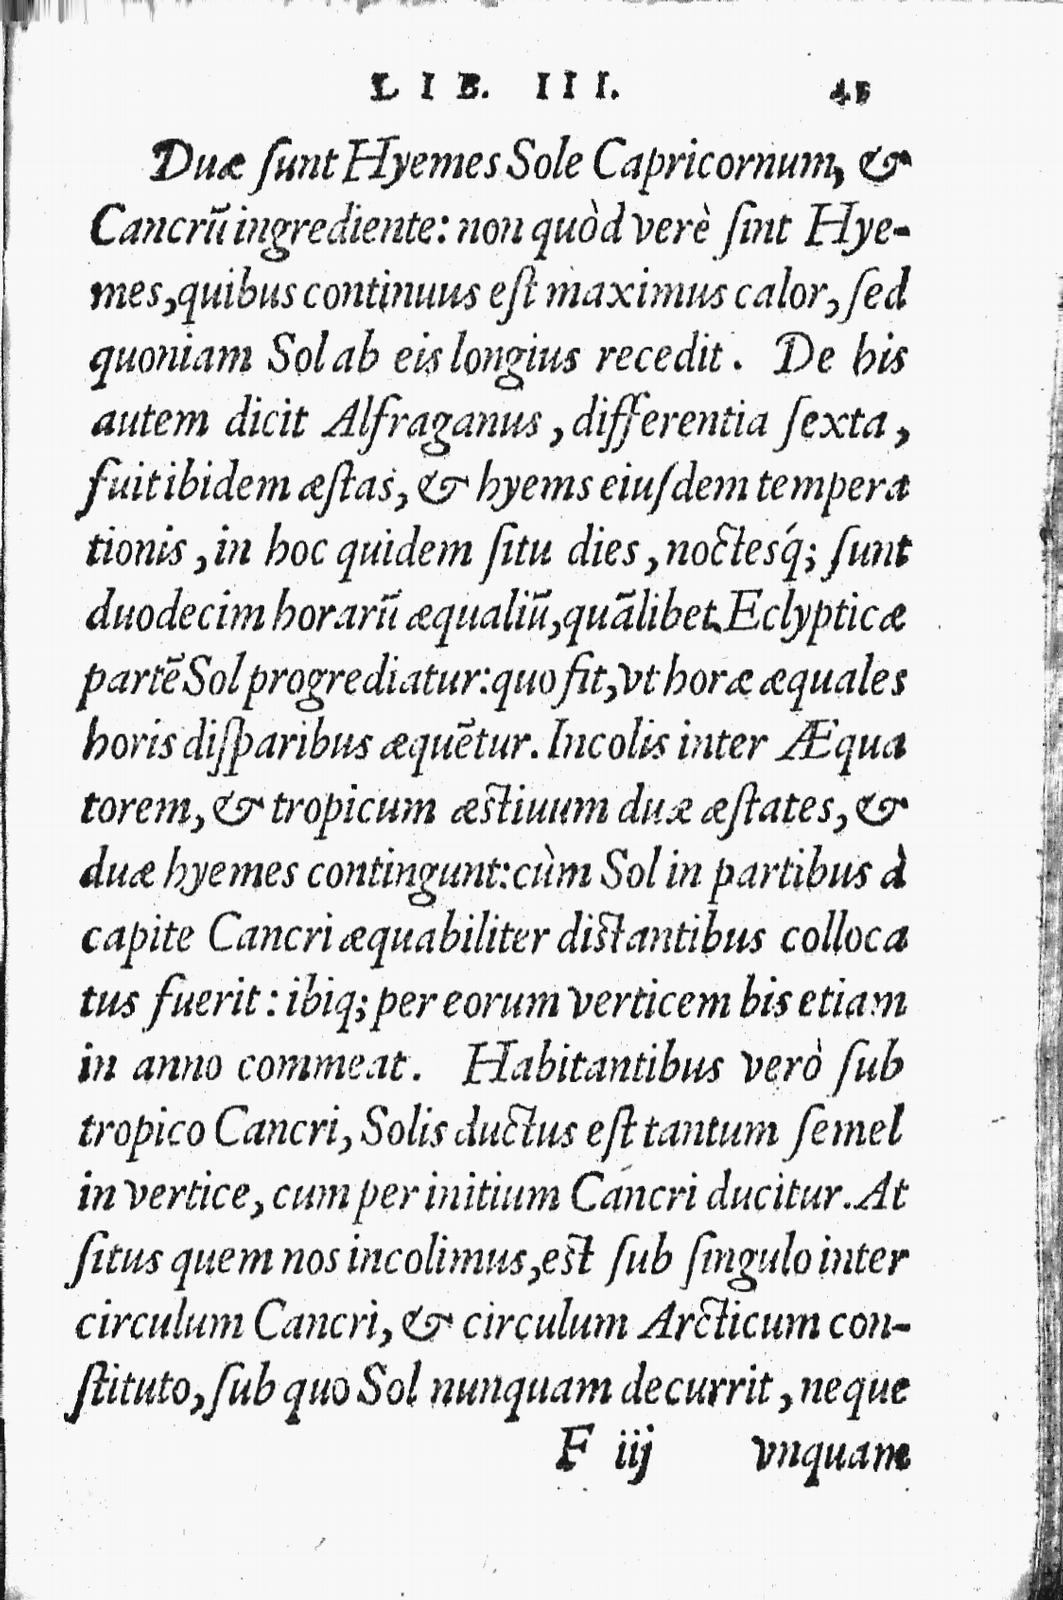 LIB. III. 45
Duæ ſunt Hyemes Sole Capricornum, &
Cancrū ingrediente: non quòd verè ſint Hye-
mes, quibus continuus eſt maximus calor, ſed
quoniam Sol ab eis longius recedit. De his
autem dicit Alfraganus, differentia ſexta,
fuit ibidem æſtas, & hyems eiuſdem tempera
tionis, in hoc quidem ſitu dies, noctesq́; ſunt
duodecim horarū æqualiū, quãlibet Eclypticæ
partē Sol progrediatur: quo fit, vt horæ æquales
horis diſparibus æquētur. Incolis inter Æqua
torem, & tropicum æſtiuum duæ æſtates, &
duæ hyemes contingunt: cùm Sol in partibus à
capite Cancri æquabiliter diſtantibus colloca
tus fuerit: ibiq; per eorum verticem bis etiam
in anno commeat. Habitantibus verò ſub
tropico Cancri, Solis ductus eſt tantum ſemel
in vertice, cum per initium Cancri ducitur. At
ſitus quem nos incolimus, eſt ſub ſingulo inter
circulum Cancri, & circulum Arcticum con-
ſtituto, ſub quo Sol nunquam decurrit, neque
F iij vnquam